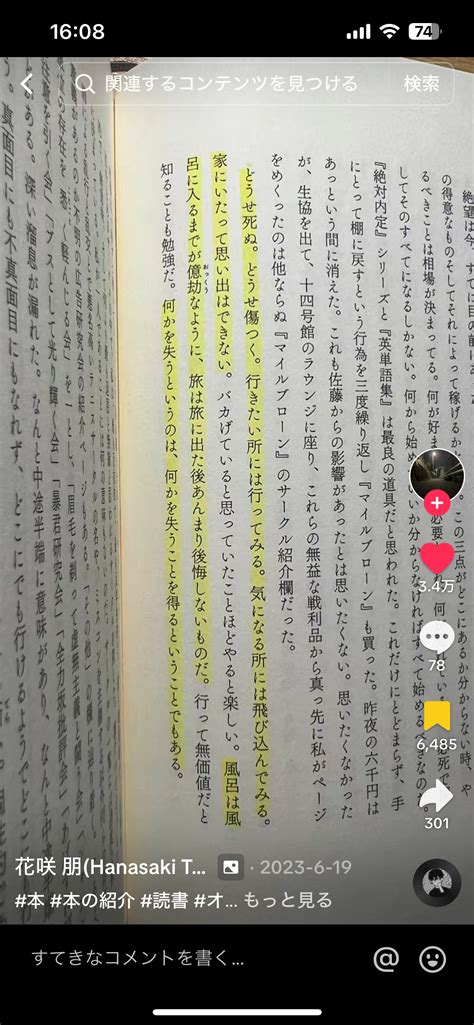 16:08
74
関連するコンテンツを見つける
検索
の得意なものそしてそれによって稼げるか この三点があるか分からない時、や
るべきことは相場が決まってる。何が好ま 必要 何 必死で
してそのすべてになるしかない。何から始め いいか分からなければすべて始めるべきなのだ。
『絶対内定』シリーズと『英単語集』は最良の道具だと思われた。これだけにとどまらず、手
にとって棚に戻すという行為を三度繰り返し『マイルブローン』も買った。昨夜の六千円は
あっという間に消えた。これも佐藤からの影響があったとは思いたくない。思いたくなかった
が、生協を出て、十四号館のラウンジに座り、これらの無益な戦利品から真っ先に私がページ
をめくったのは他ならぬ『マイルブローン』のサークル紹介欄だった。
どうせ死ぬ。どうせ傷つく。行きたい所には行ってみる。気になる所には飛び込んでみる。
家にいたって思い出はできない。バカげていると思っていたことほどやると楽しい。風呂は風
呂に入るまでが億劫なように、旅は旅に出た後あんまり後悔しないものだ。行って無価値だと
おっくう
知ることも勉強だ。何かを失うというのは、何かを失うことを得るということでもある。
を引く会」「フスとして光り輝く会」「暴君研究会」「全力坂批評会」
ある。深い溜息が漏れた。なんと中途半端に意味があり、なんと中途
う。真面目にも不真面目にもなれず、どこにでも行けるようでどこ
3.4万
78
6,485
301
花咲 朋(Hanasaki T... · 2023-6-19
#本 #本の紹介 #読書 #オ... もっと見る
すてきなコメントを書く...